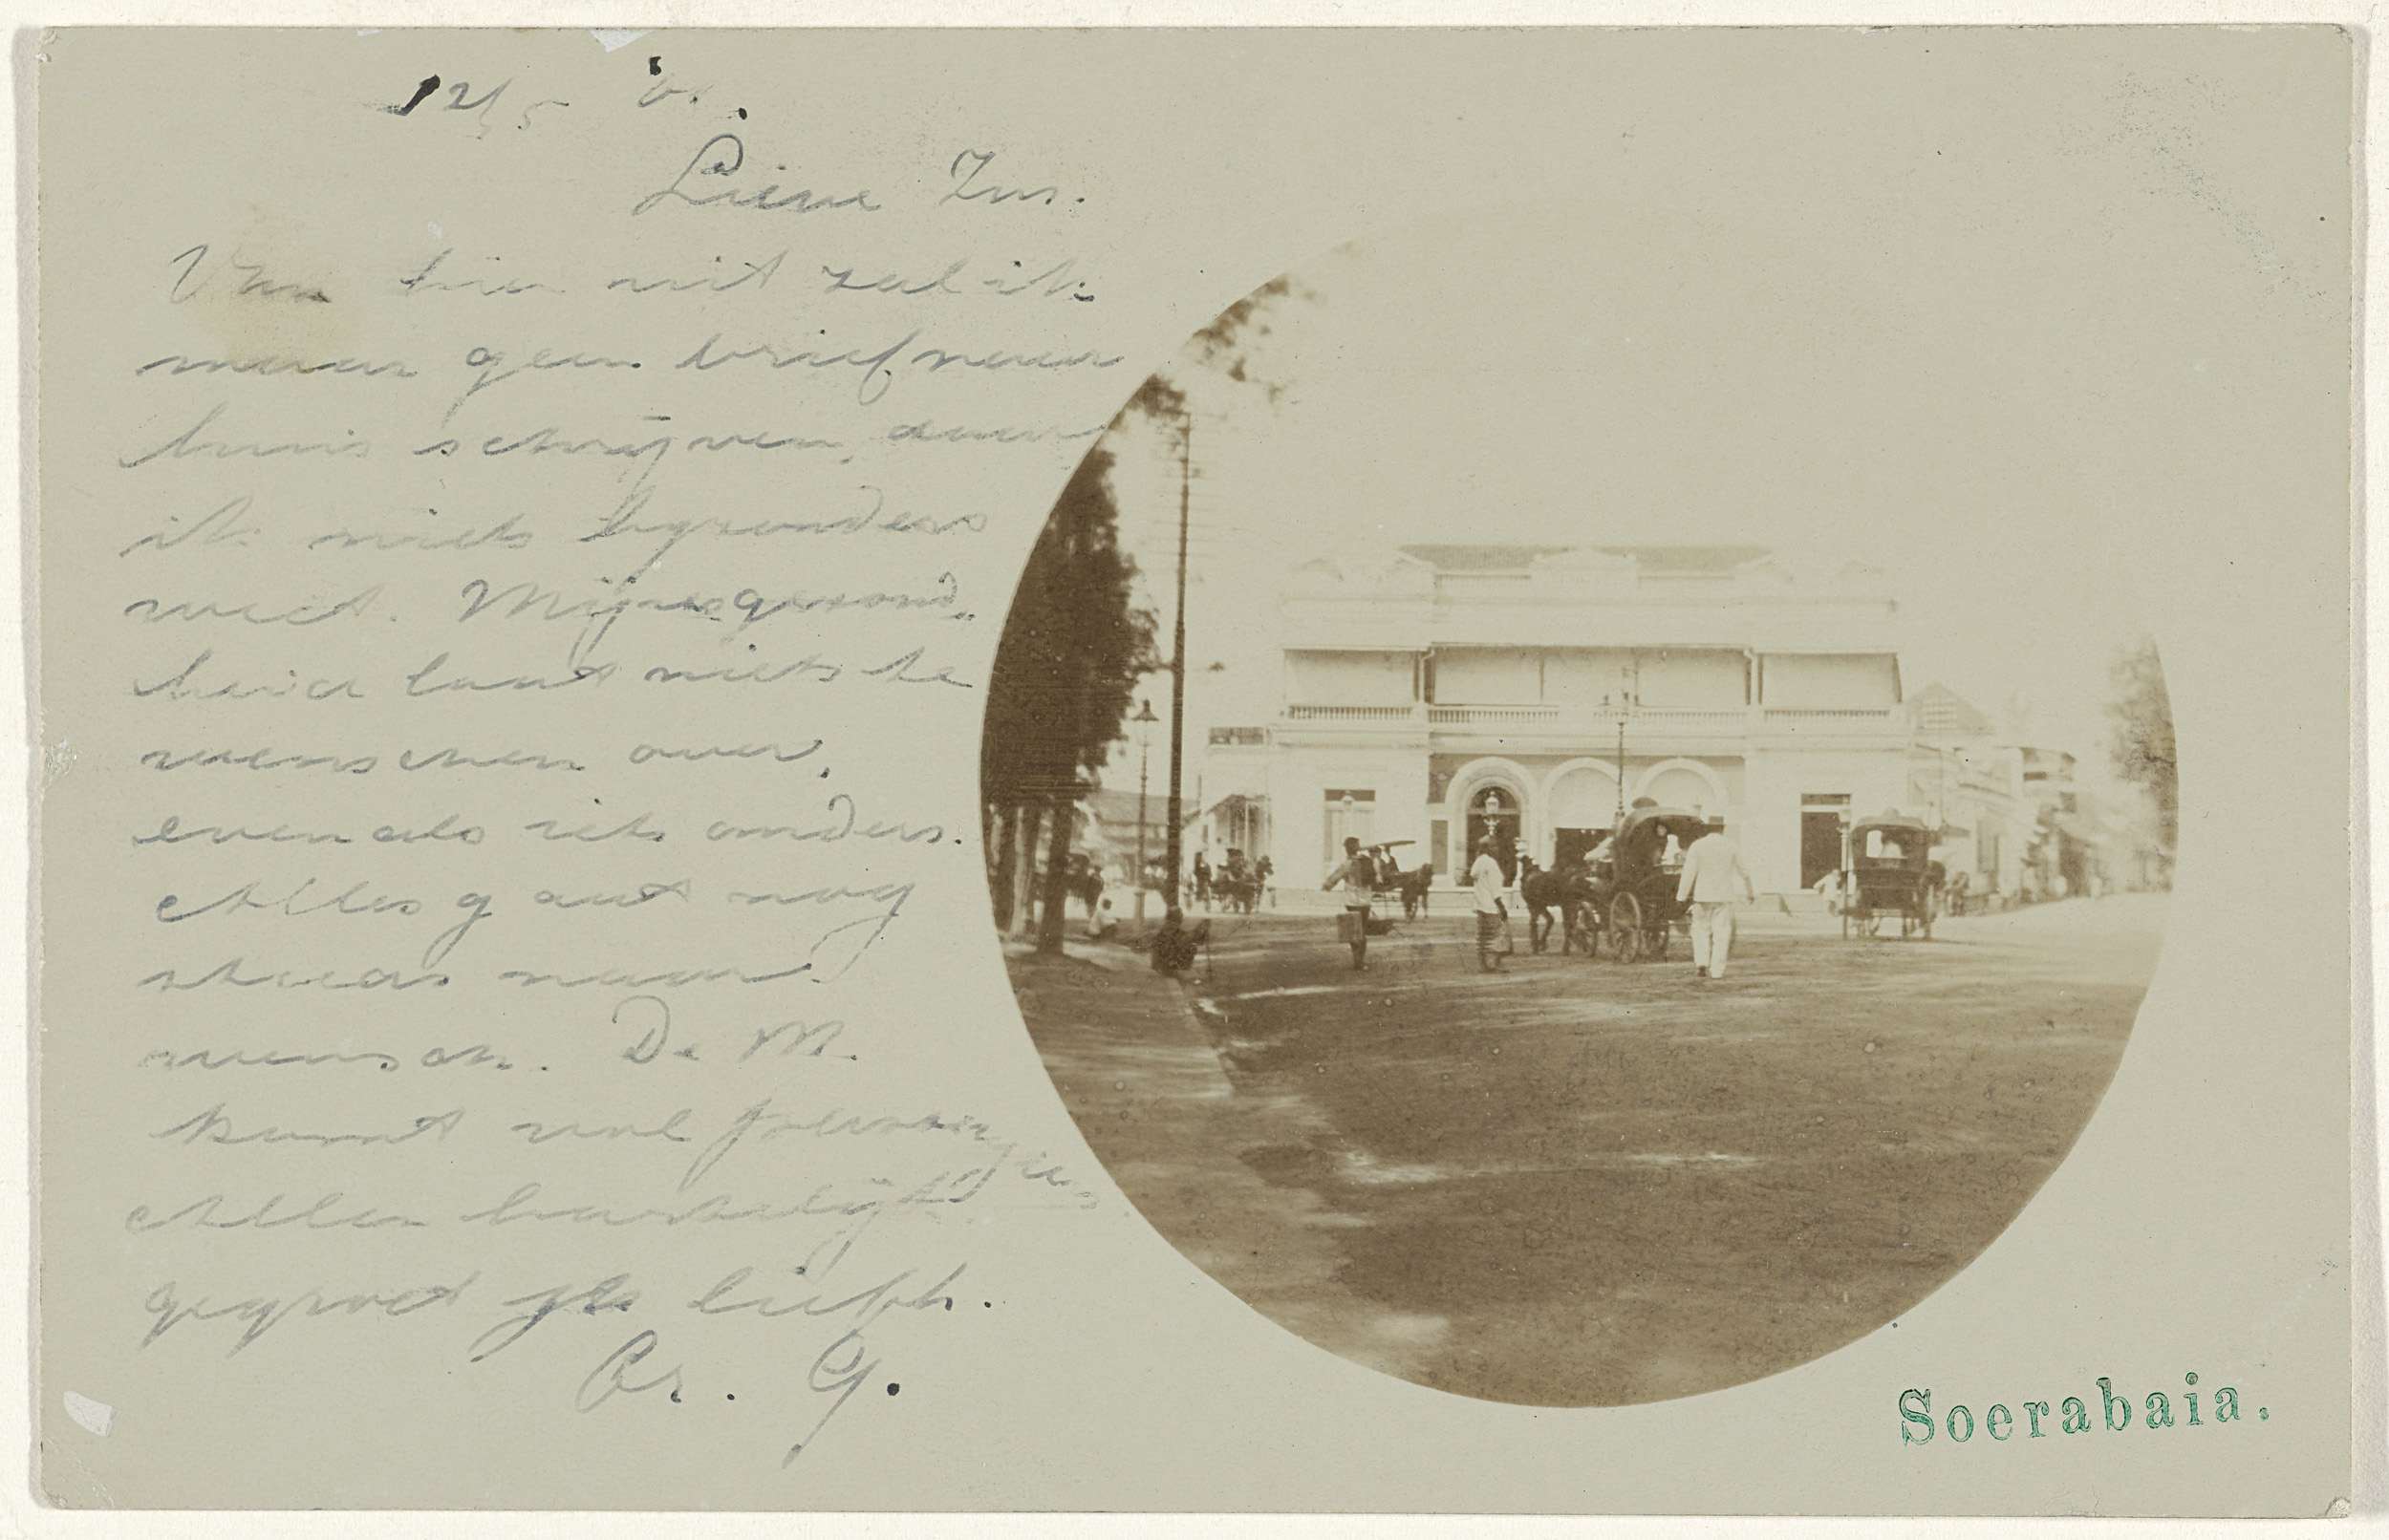 12/5 '01.
Lieve Zus.
Van hier uit zal ik
maar geen brief naar
huis schrijven, daar
ik niets byzonders
weet. Mijne gezond„
heid laat niets te
wenschen over,
evenals iets anders.
Alles gaat nog
steeds naar
wensch. De M.
komt wel
Allen hartelijk
gegroet je liefh.
Br. G.
Soerabaia.